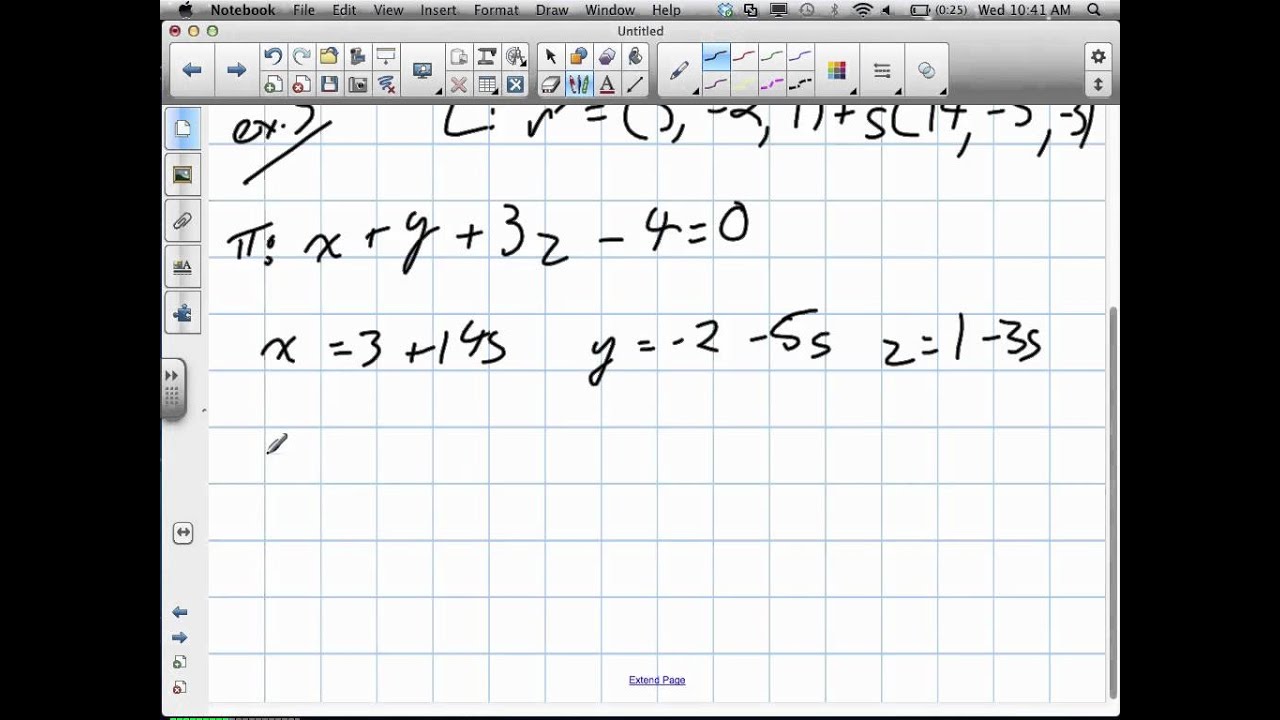 Notebook File Edit View Insert Format Draw Window Help (0:25) Wed 10:41 AM
Untitled
ex.3 L: r = (3, -2, 1) + s(14, -5, -3)
π: x + y + 3z - 4 = 0
x = 3 + 14s y = -2 - 5s z = 1 - 3s
Extend Page